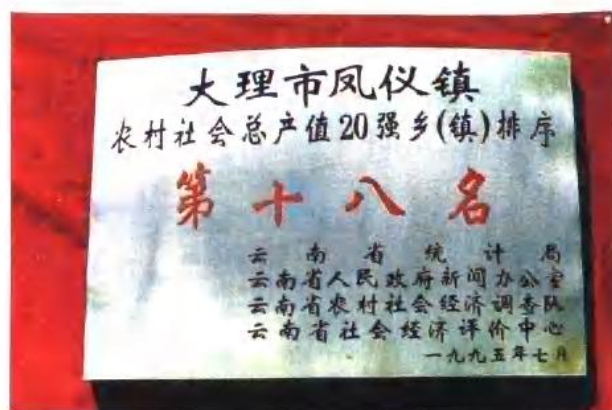 大理市凤仪镇
农村社会总产值20强乡(镇)排序
第十八名
云南省统计局
云南省人民政府新闻办公室
云南省农村社会经济调查队
云南省社会经济评价中心
一九九五年七月